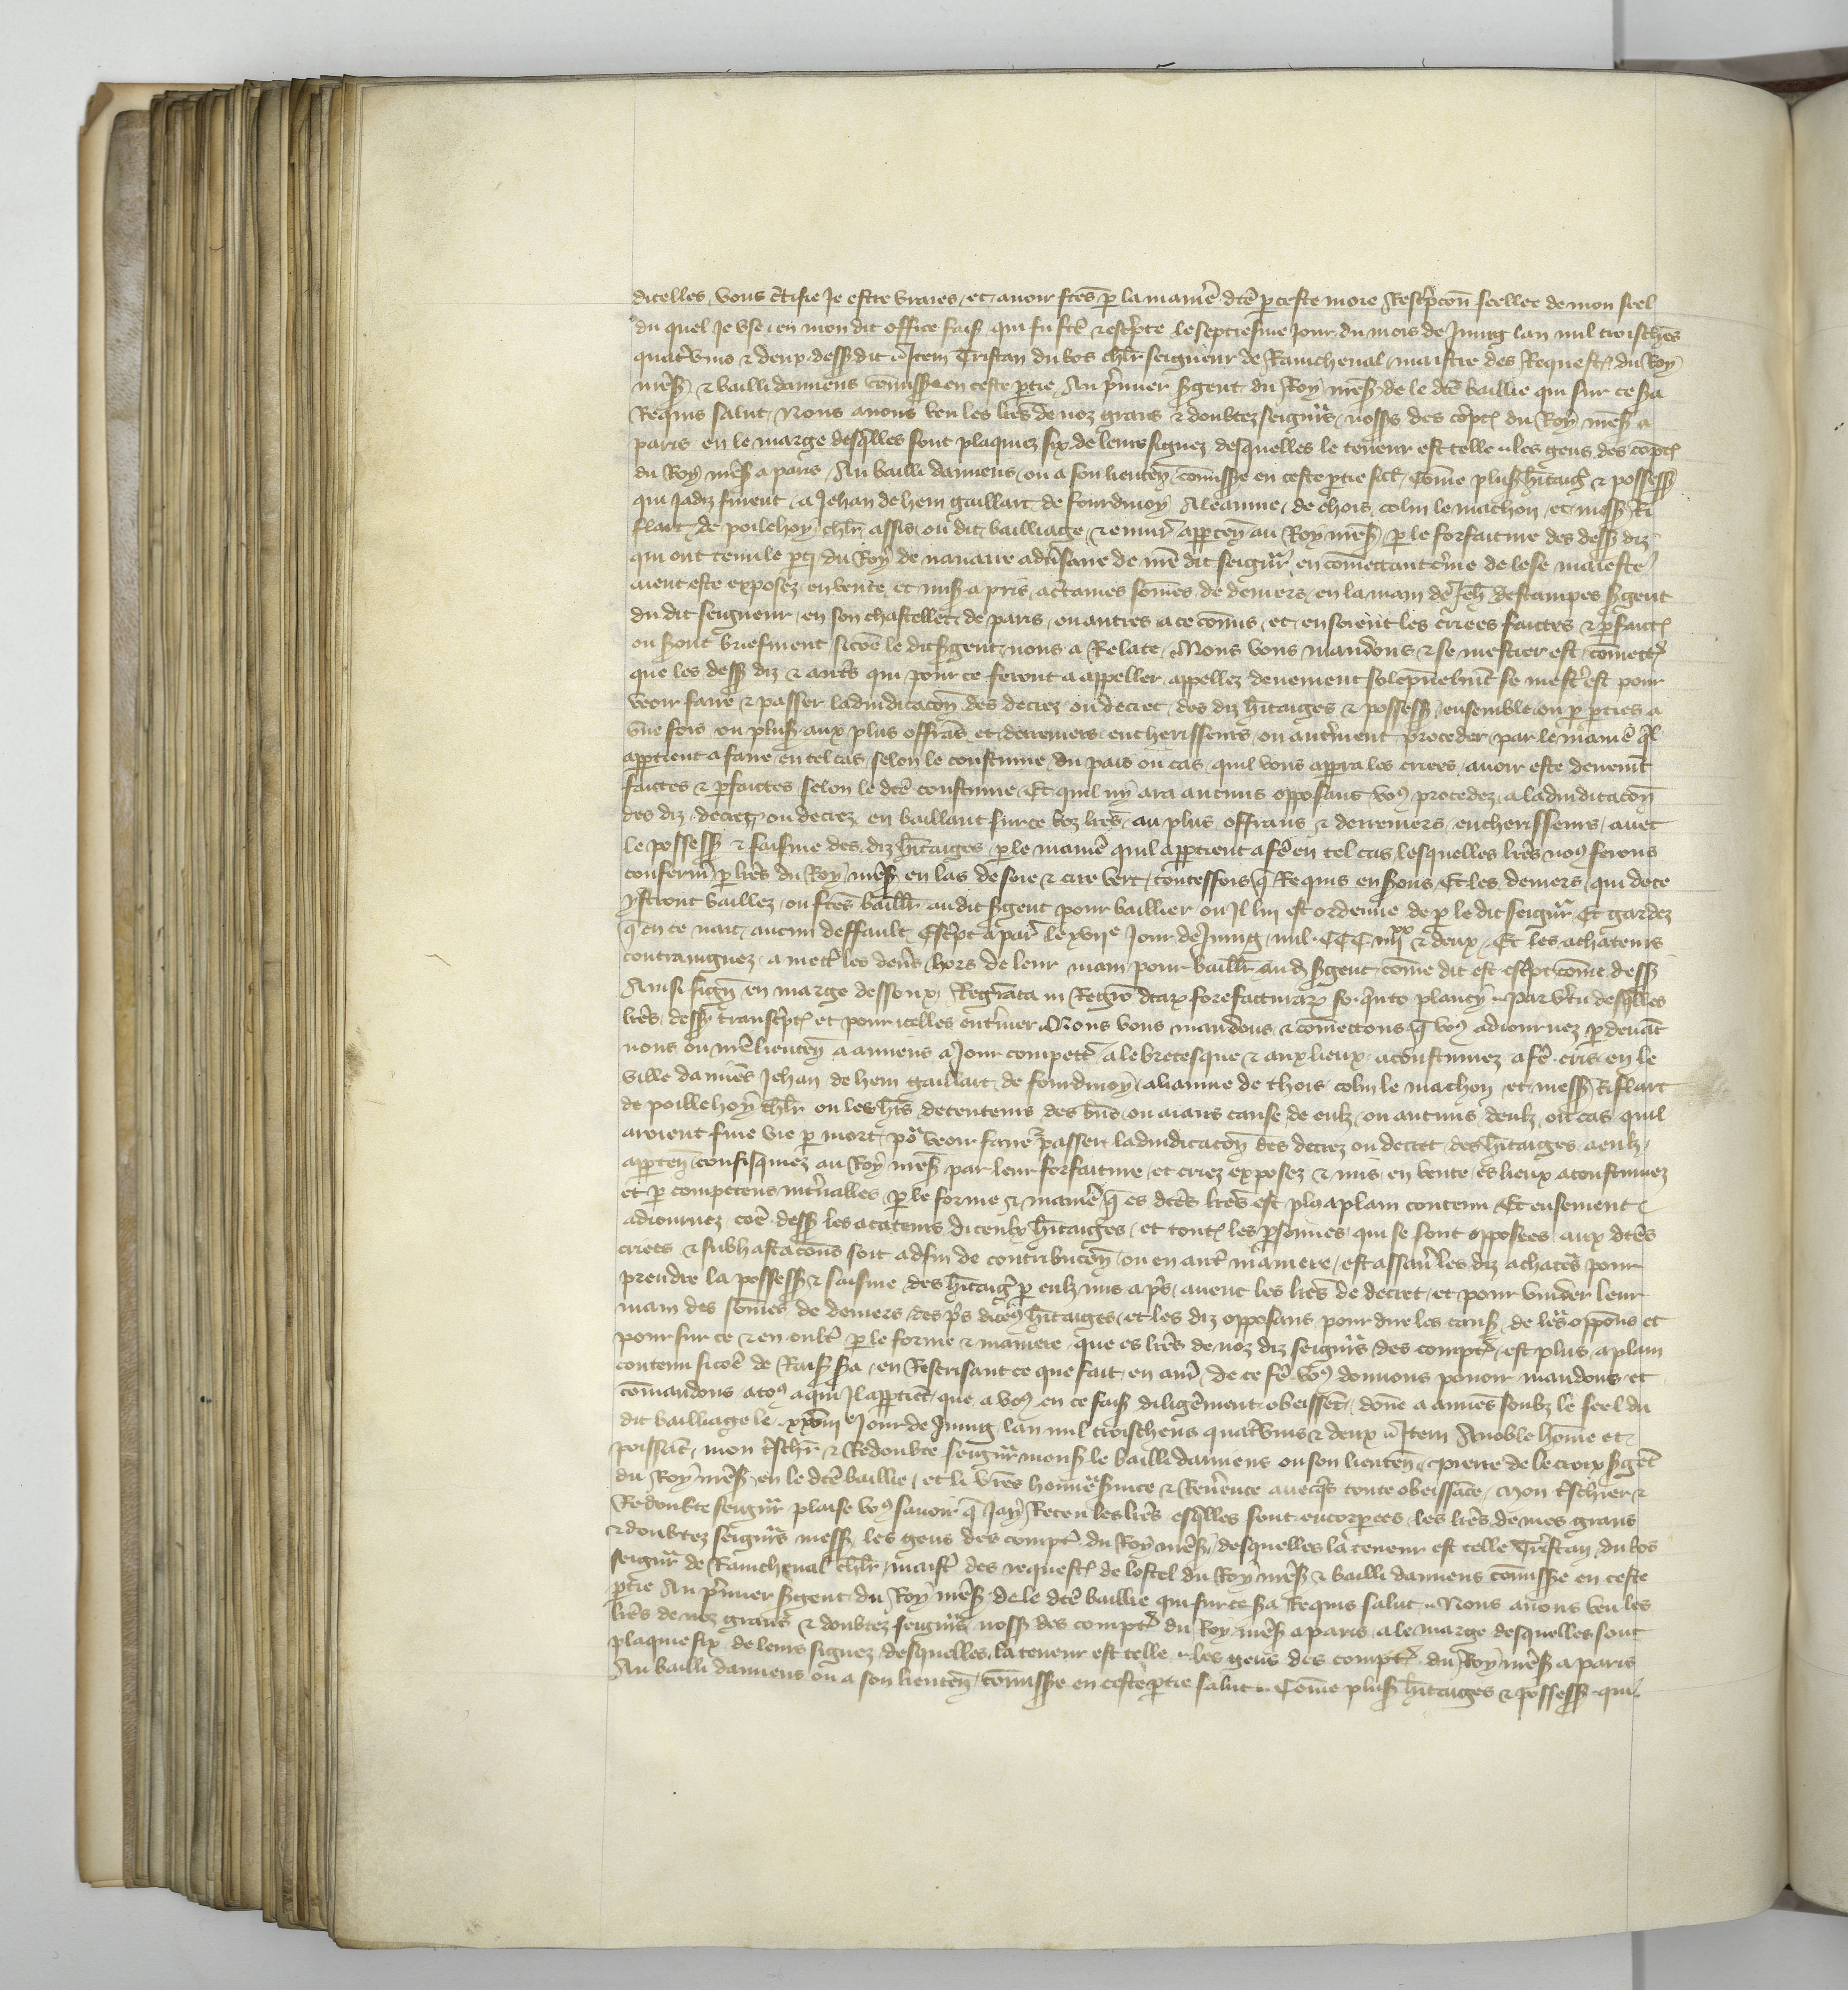 dicelles vous certifie Je estre vraies et avoir fces p la maniere dce p ceste moie Rescripcon seellee de mon seel
du quel Je use en mon dit office faiz qui fu fct & escripte le septiesme Jour du mois de Juing lan mil troischens
quatrevins & deux dessus dit Item Tristan du bos chlr seigneur de Rainchenal maistre des Requestes du Roy
nres & bailli damiens comisse en ceste ptie Au premier sgent du Roy nres de le dce baillie qui sur ce sa
Requis salut Nous avons veu les lres de noz grans & doubtez seigneurs noss des coptes du Roy nres a
paris en le marge desqlles sont plaquiez six de leurs signez desquelles le teneur est telle les gens des coptes
du Roy nres a paris Au bailli damiens ou a son lieuten comisse en ceste ptie salt Come plus hitaiges & possess
qui Jadiz furent a Jehan de hem gaillart de fourdinoy Aleaume de thois colin le machon et mess Ri
flart de poillehoy chlr assis ou dit bailliage & enuir apptenn au Roy nres p le forfaiture des dess diz
qui ont tenu le pti du Roy de navarre adversaire de nre dit seigneur en comettant crime de lese maieste
aient este exposez en vente et mis a pris a ctaines somes de deniers en la main de Jeh destampes sgent
du dit seigneur en son chastellet de paris ou autres a ce comis et en soient les criees faictes & pfaictes
ou sont briefment sicoe le dit sgent nous a Relate Nous vous mandons & se mestier est comett
que les dess diz & autres qui pour ce seront a appeller appellez deuement solepnelmt se mest est pour
veoir faire & passer ladiudicacon des decrez ou decret des diz hitaiges & possess ensemble ou p pties a
une fois ou plus aux plus offrans et derreniers encherisseurs ou autrement proceder par le maniere ql
apptient a faire en tel cas selon le coustume du pais ou cas quil vous appra les criees avoir este deuemt
faictes & pfaictes selon le dce coustume Et quil ny ara aucuns opposans vo procedez a ladiudicacon
des diz decret ou decrez en baillant sur ce voz lres au plus offrans & derreniers encherisseurs avec
le possess & saisine des diz hitaiges p le maniere quil apptient a fe en tel cas lesquelles lres no ferons
conferm p lres du Roy nres en las de soie & cire vert toutesfois q Requis en serons Et les deniers qui de ce
ystront bailliez ou fces baillr au dit sgent pour baillier ou Il lui est ordenne de p le dit seigneur Et gardez
q en ce nait aucun deffault Escript a par le xviie Jour de Juing mil CCC iiiixx & deux Et les achateurs
contraingniez a mett les deniers hors de leur main pour baillr au d sgent come dit est escript come dess
Ainsi sign en marge dessoux Registrata in Registro dcar forefacturar fo quinto plancy Par vertu desqlles
lres dess transcriptes et pour icelles enteriner Nous vous mandons & comettons q vo adiournez p devant
nous ou nre lieuten a amiens a Jour competent a le bretesque & aux lieux acoustumez a fe cris en le
ville damies Jehan de hem gaillart de fourdinoy aleaume de thois colin le machon et mess Riflart
de poillehoy chlr ou les hirs detenteurs des bns ou aians cause de eulx ou aucuns deulx ou cas quil
aroient fine vie p mort po veoir faire & passer ladiudicacon des decrez ou decret des hitaiges a eulx
apptenn confisquiez au Roy nres par leur forfaiture et criez exposez & mis en vente es lieux acoustumez
et p competens intervalles p le forme & maniere q es dces lres est plo a plain contenu Et ensement
adiournez coe dess les acateurs diceulx hitaiges et toutes les psonnes qui se sont opposees aux dces
criees & subhastacons soit a fin de contribucon ou en autre maniere est assavoir les diz achateurs pour
prendre la possess & saisine des hitaiges p eulx mis a pris avenc les lres de decret et pour vuider leur
main des somes de deniers des pris diceulx hitaiges et les diz opposans pour dire les causes de leurs oppons et
pour sur ce & en oultre p le forme & maniere que es lres de noz diz seigneurs des comptes est plus a plain
contenu sicoe de Rais sa en Rescrisant ce que fait en aur de ce fe vo donnons pouoir mandons et
comandons a to a qui Il apptiet que a vo en ce faiz diligement obeissent done a amies soubz le seel du
dit bailliage le xxviiie Jour de Juing lan mil troischens quatrevins & deux Item A noble home et
poissat mon treschr & Redoubte seigneur mons le bailli damiens ou son lieuten pierre de le croix sgent
du Roy nres en le dce baillie et li vres honneur suice & Reverence avecqs toute obeissance mon treschier &
Redoubte seigneur plaise vo savoir q Jay Receu les lres esqlles sont encorpees les lres de mes grans
& doubtez seigneurs mess les gens des comptes du Roy nres desquelles la teneur est telle Tristan du bos
seigneur de Rainchenal chlr maist des requestes de lostel du Roy nres & bailli damiens comisse en ceste
ptie Au premier sgent du Roy nres de le dce baillie qui sur ce sa Requis salut Nous avons veu les
lres de noz grans & doubtez seigneurs noss des comptes du Roy nres a paris a le marge desquelles sont
plaquie six de leurs signez desquelles la teneur est telle les gens des comptes du Roy nres a paris
Au bailli damiens ou a son lieuten comisse en ceste ptie salut Come plus hitaiges & possess qui